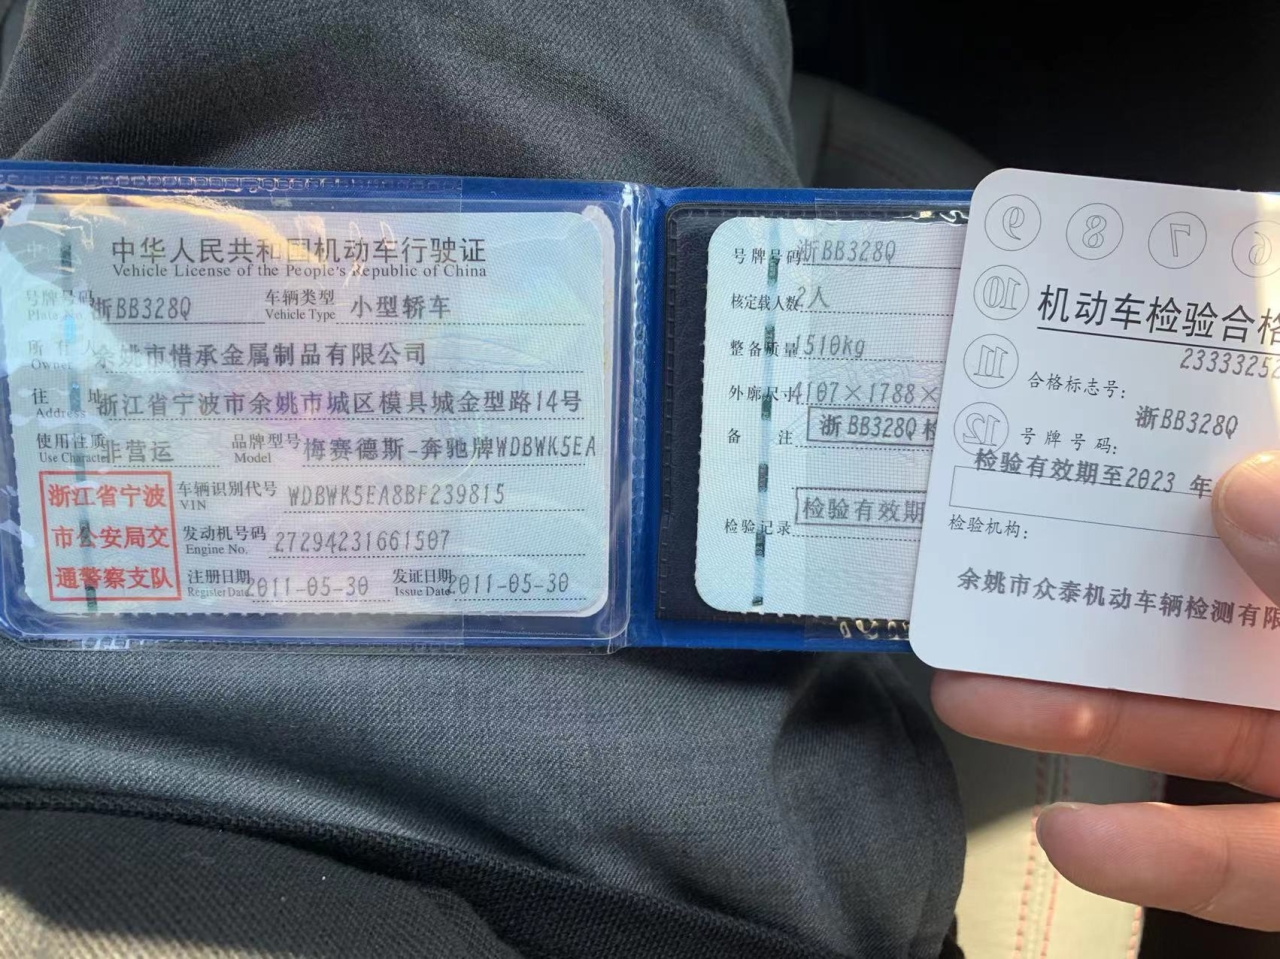 中华人民共和国机动车行驶证
Vehicle License of the People's Republic of China
号牌号码 浙BB328Q 车辆类型 小型轿车
Plate No. Vehicle Type
所有人 余姚市惜承金属制品有限公司
Owner
住址 浙江省宁波市余姚市城区模具城金型路14号
Address
使用性质 非营运 品牌型号 梅赛德斯-奔驰牌WDBWK5EA
Use Character Model
浙江省宁波
市公安局交
通警察支队
车辆识别代号 WDBWK5EA8BF239815
VIN
发动机号码 27294231661507
Engine No.
注册日期 2011-05-30 发证日期 2011-05-30
Register Date Issue Date
号牌号码 浙BB328Q
核定载人数 2人
整备质量 1510kg
外廓尺寸 4107×1788×
备注 浙BB328Q
检验有效期
检验记录
9 8 7 6
10
11
12
机动车检验合格
23333252
合格标志号:
浙BB328Q
号牌号码:
检验有效期至2023 年
检验机构:
余姚市众泰机动车辆检测有限